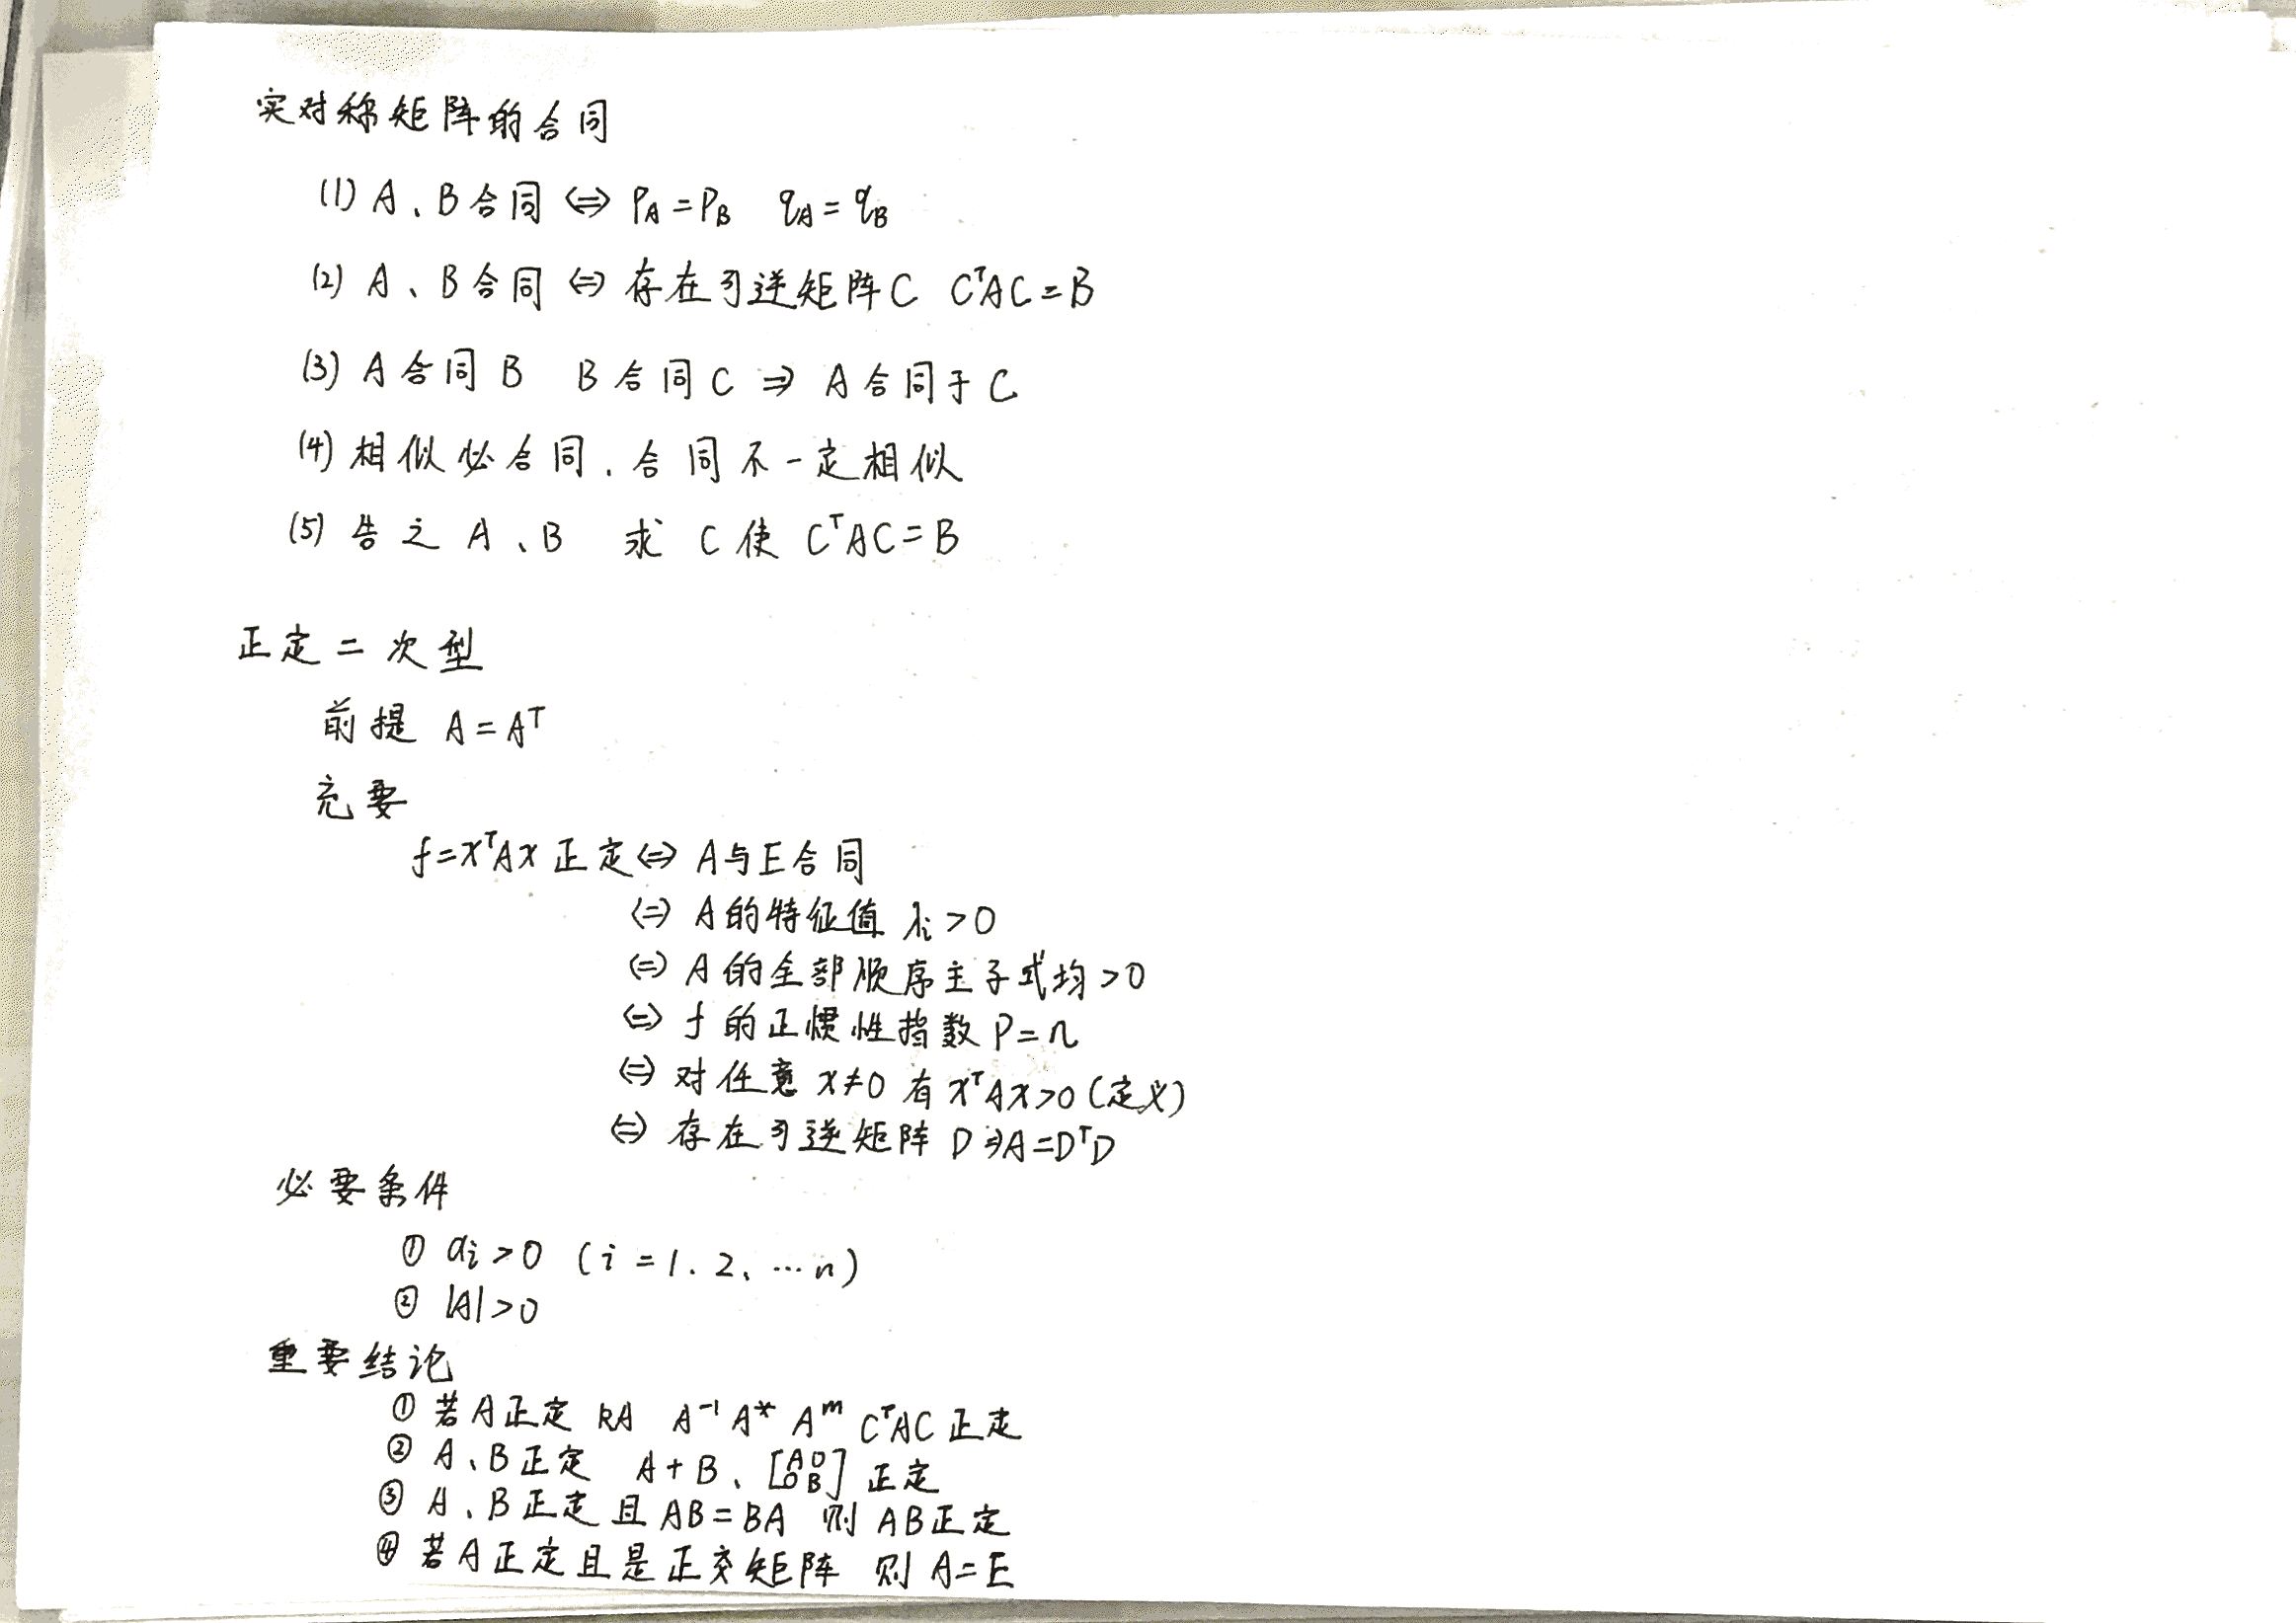 实对称矩阵的合同
(1) A、B合同 ⇔ PA=PB qA=qB
(2) A、B合同 ⇔ 存在可逆矩阵C CᵀAC=B
(3) A合同B B合同C ⇒ A合同于C
(4) 相似必合同.合同不一定相似
(5) 告之 A、B 求 C使 CᵀAC=B
正定二次型
前提 A=Aᵀ
充要
f=xᵀAx 正定⇔ A与E合同
⇔ A的特征值 λi>0
⇔ A的全部顺序主子式均>0
⇔ f的正惯性指数 P=n
⇔ 对任意 x≠0 有 xᵀAx>0(定义)
⇔ 存在可逆矩阵 D∋A=DᵀD
必要条件
① ai>0 (i=1.2、…n)
② |A|>0
重要结论
① 若A正定 kA A⁻¹ A* Aᵐ CᵀAC正定
② A、B正定 A+B、[A 0 0 B] 正定
③ A、B正定且AB=BA 则 AB正定
④ 若A正定且是正交矩阵 则 A=E